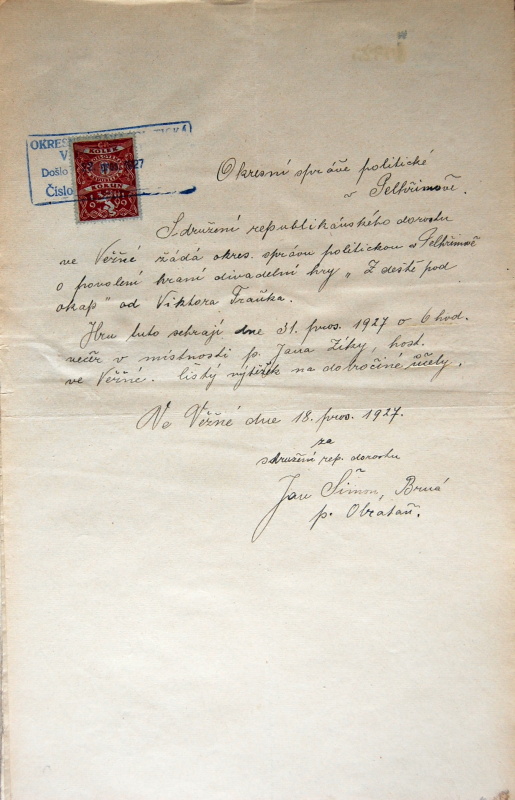 OKRES
V
Došlo 1927
Číslo
KOLEK
KORUN
5
Okresní správě politické
v Pelhřimově.
Sdružení republikánského dorostu
ve Věžné žádá okres. správu politickou v Pelhřimově
o povolení hraní divadelní hry „Z deště pod
okap" od Viktora Fraňka.
Hru tuto sehrají dne 31. pros. 1927 o 6 hod.
večer v místnosti p. Jana Zíky, host.
ve Věžné. Čistý výtěžek na dobročiné účely.
Ve Věžné dne 18. pros. 1927.
za
sdružení rep. dorostu
Jan Šimon, Brná
p. Obrataň.